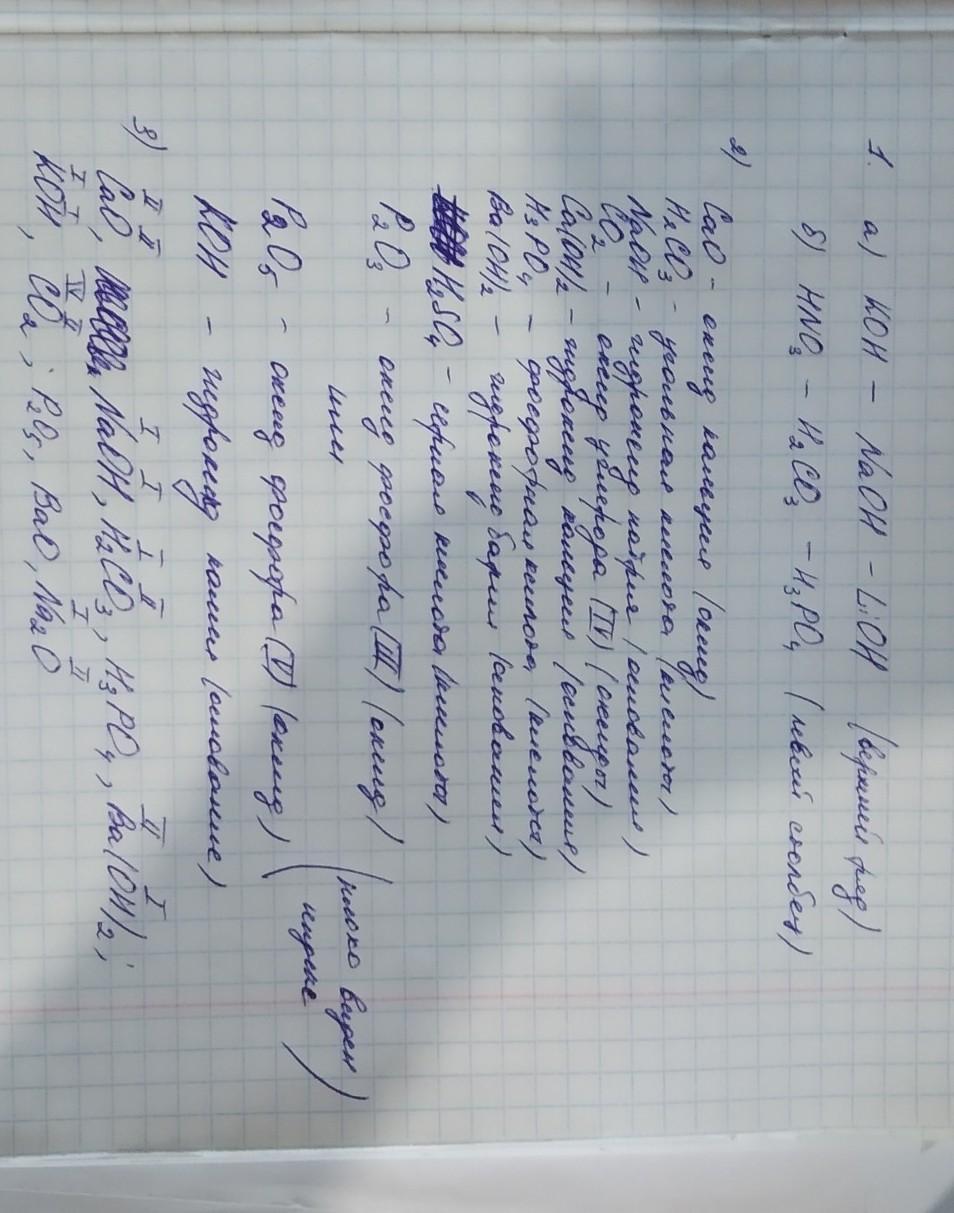 1. а) KOH – NaOH – LiOH (верхний ряд)
б) HNO₃ – H₂CO₃ – H₃PO₄ (левый столбец)
2) CaO – оксид кальция (оксид)
H₂CO₃ – угольная кислота (кислота)
NaOH – гидроксид натрия (основание)
CO₂ – оксид углерода (IV) (оксиды)
Ca(OH)₂ – гидроксид кальция (основание)
H₃PO₄ – фосфорная кислота (кислота)
Ba(OH)₂ – гидроксид бария (основание)
H₂SO₄ – серная кислота (кислота)
P₂O₃ – оксид фосфора (III) (оксид)
или
P₂O₅ – оксид фосфора (V) (оксид)
(плохо виден
индекс)
KOH – гидроксид калия (основание)
3) II II I I I II II I
CaO, NaOH, H₂CO₃, H₃PO₄, Ba(OH)₂;
I I IV II I II
KOH, CO₂; P₂O₅, BaO, Na₂O